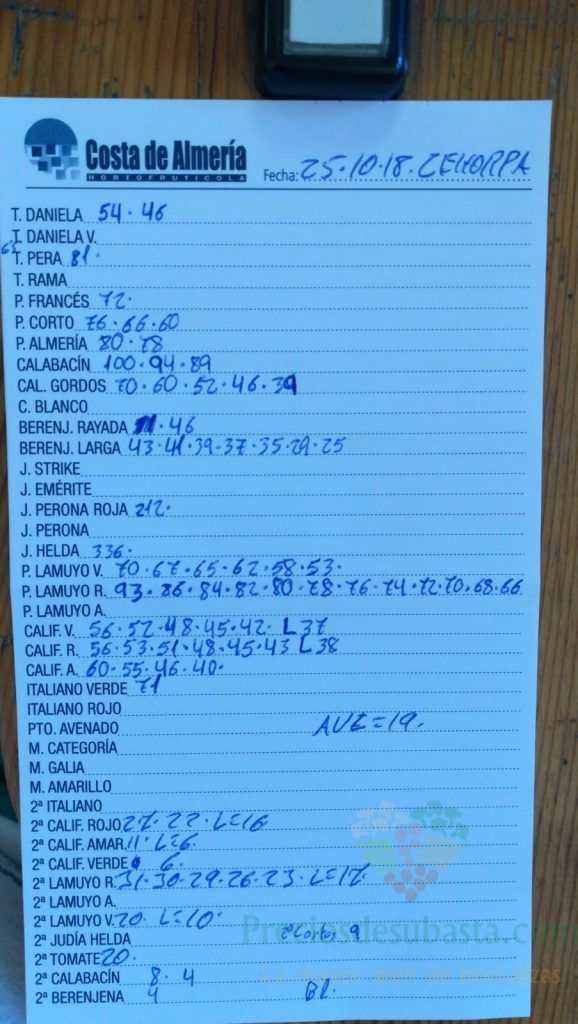 Costa de Almería
HORTOFRUTICOLA
Fecha: 25.10.18. ZEHORPA
T. DANIELA 54.46
T. DANIELA V.
T. PERA 81.
T. RAMA
P. FRANCÉS 72.
P. CORTO 76.66.60
P. ALMERÍA 80.78
CALABACÍN 100.94.89
CAL. GORDOS 70.60.52.46.39
C. BLANCO
BERENJ. RAYADA .46
BERENJ. LARGA 43.41.39.37.35.29.25
J. STRIKE
J. EMÉRITE
J. PERONA ROJA 212.
J. PERONA
J. HELDA 336.
P. LAMUYO V. 70.67.65.62.58.53.
P. LAMUYO R. 93.86.84.82.80.78.76.74.72.70.68.66
P. LAMUYO A.
CALIF. V. 56.52.48.45.42. L 37
CALIF. R. 56.53.51.48.45.43 L 38
CALIF. A. 60.55.46.40.
ITALIANO VERDE 71
ITALIANO ROJO
PTO. AVENADO AVE=19.
M. CATEGORÍA
M. GALIA
M. AMARILLO
2ª ITALIANO
2ª CALIF. ROJO 27.22.L=16
2ª CALIF. AMAR. 11. L=6.
2ª CALIF. VERDE 6.
2ª LAMUYO R. 31.30.29.26.23.L=17.
2ª LAMUYO A.
2ª LAMUYO V. 20. L=10.
Preciosdesubasta.com
2ª JUDÍA HELDA 2ª Cortos 9
2ª TOMATE 20.
La mayor web de hortalizas
2ª CALABACÍN 8.4
2ª BERENJENA 4 Bl.